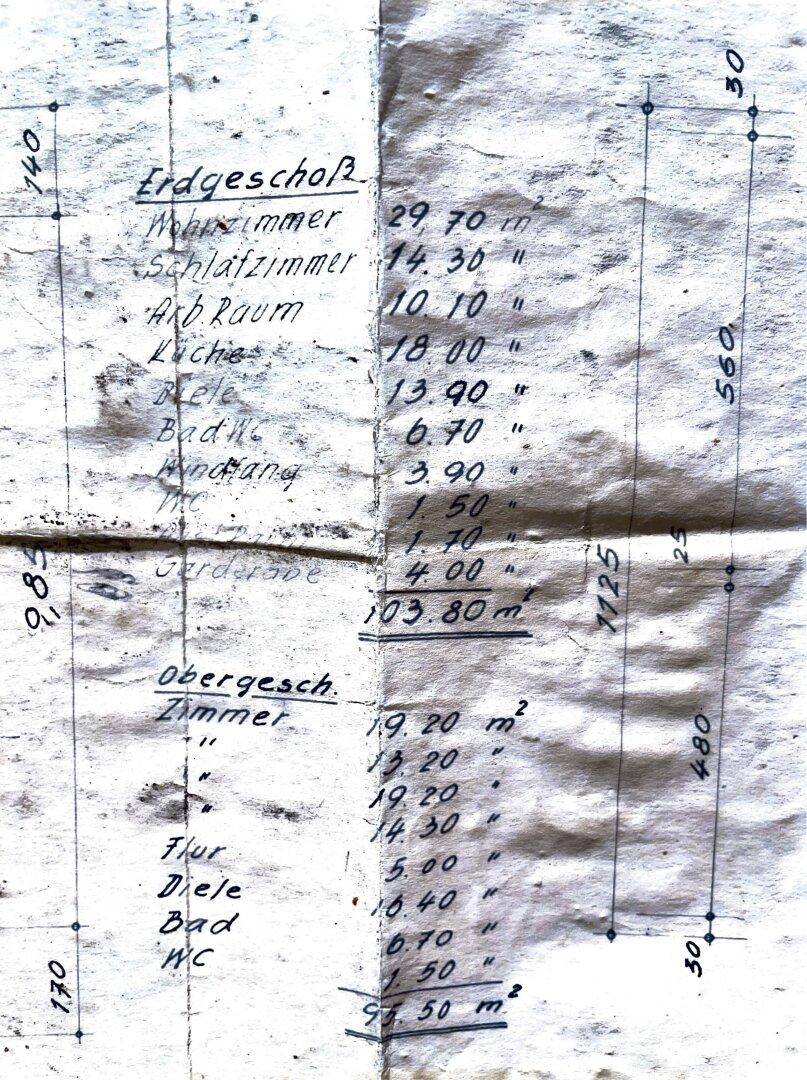 Erdgeschoß
Wohnzimmer 29,70 m²
Schlafzimmer 14.30 "
Arb.Raum 10.10 "
Küche 18.00 "
Diele 13.90 "
Bad WC 6.70 "
Windfang 3.90 "
WC 1.50 "
1.70 "
Garderobe 4.00 "
103.80 m²
Obergesch.
Zimmer 19.20 m²
" 13.20 "
" 19.20 "
" 14.30 "
Flur 5.00 "
Diele 16.40 "
Bad 6.70 "
WC 1.50 "
95.50 m²
140
9,85
170
30
560
25
1125
480
30